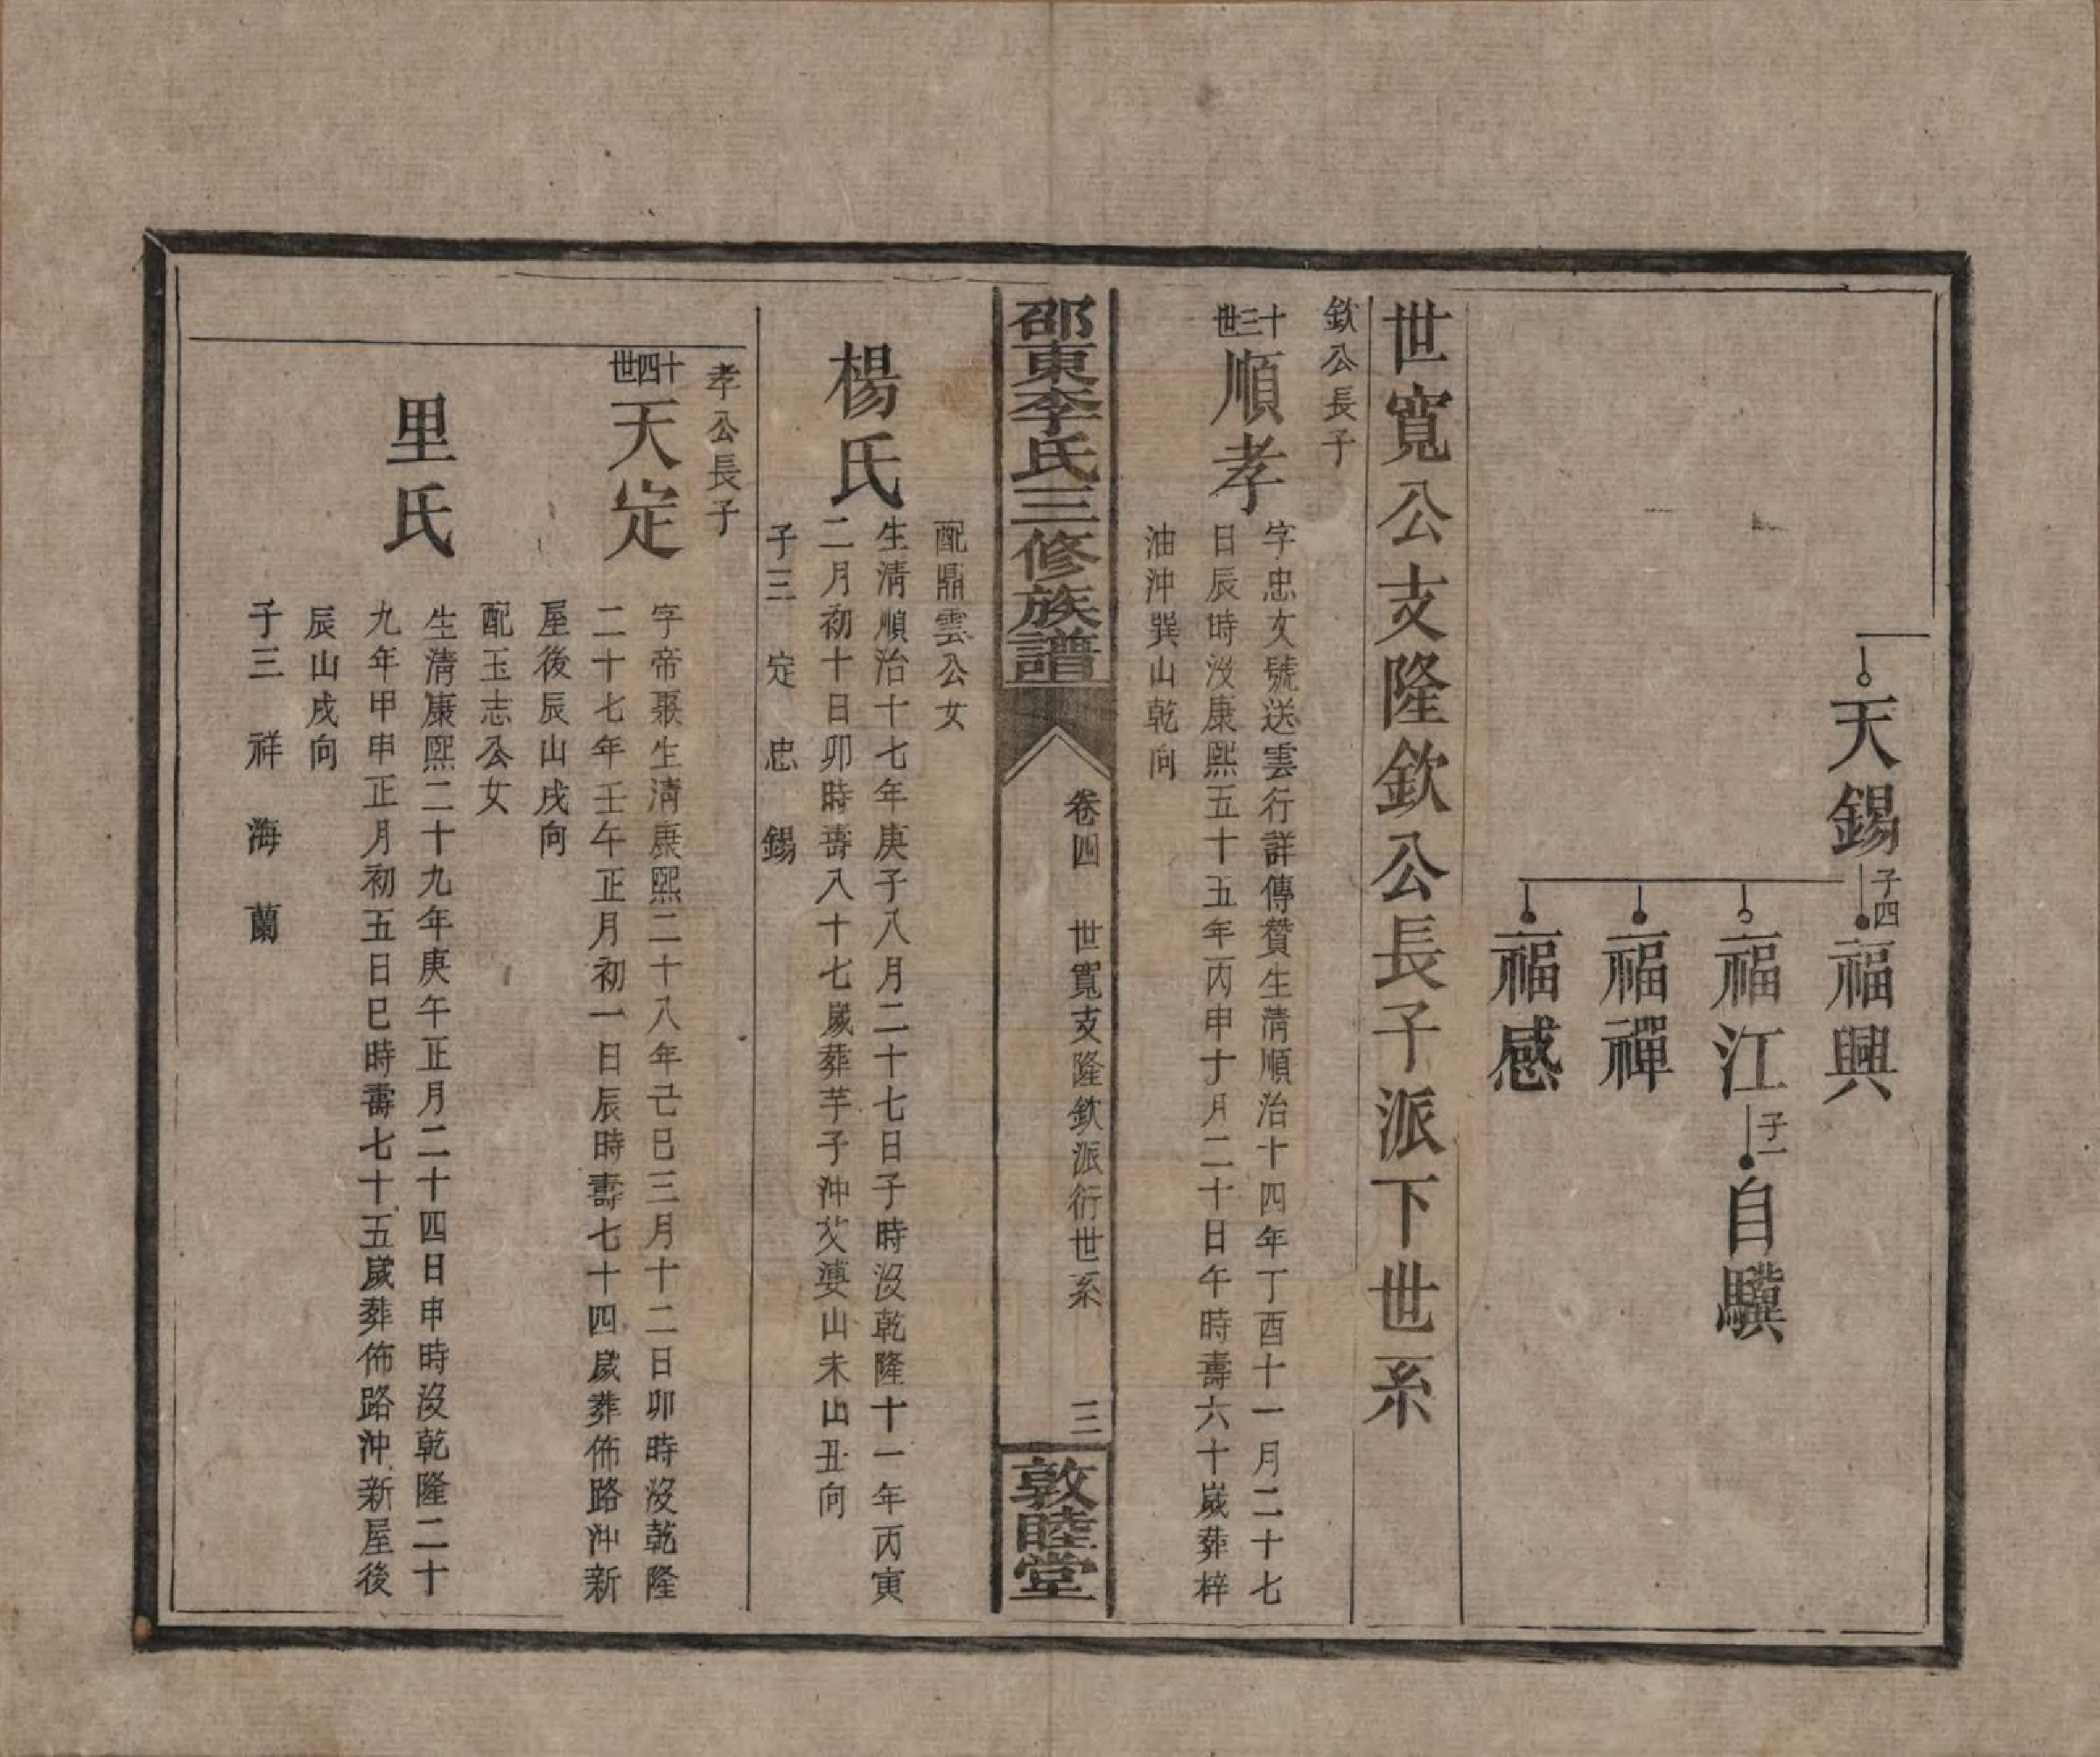 天錫 子四 福興
福江 子一 自驥
福禪
福感
世寬公支隆欽公長子派下世系
欽公長子
十三世 順孝
字忠文號送雲行詳傳贊生清順治十四年丁酉十一月二十七
日辰時沒康熙五十五年丙申十月二十日午時壽六十嵗葬梓
油沖巽山乾向
邵東李氏三修族譜
卷四 世寬支隆欽派衍世系 三
敦睦堂
配鼎雲公女
楊氏
生清順治十七年庚子八月二十七日子時沒乾隆十一年丙寅
二月初十日卯時壽八十七嵗葬芋子沖艾婆山未山丑向
子三 定 忠 錫
孝公長子
十四世 天定
字帝聚生清康熙二十八年己巳三月十二日卯時沒乾隆
二十七年壬午正月初一日辰時壽七十四嵗葬佈路沖新
屋後辰山戌向
配玉志公女
里氏
生清康熙二十九年庚午正月二十四日申時沒乾隆二十
九年甲申正月初五日巳時壽七十五嵗葬佈路沖新屋後
辰山戌向
子三 祥 海 蘭